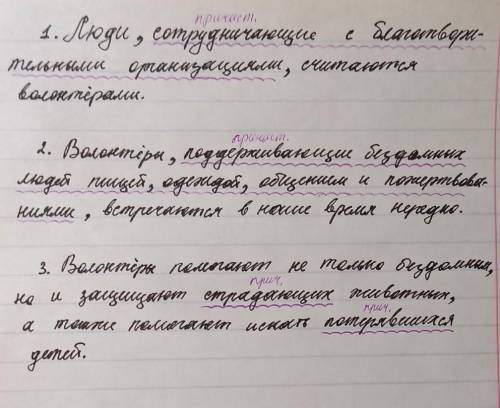 причаст.
1. Люди, сотрудничающие с благотвори-
тельными организациями, считаются
волонтёрами.
причаст.
2. Волонтёры, поддерживающие бездомных
людей пищей, одеждой, общением и пожертвова-
ниями, встречаются в наше время нередко.
3. Волонтёры помогают не только бездомным,
прич.
но и защищают страдающих животных,
прич.
а также помогают искать потерявшихся
детей.